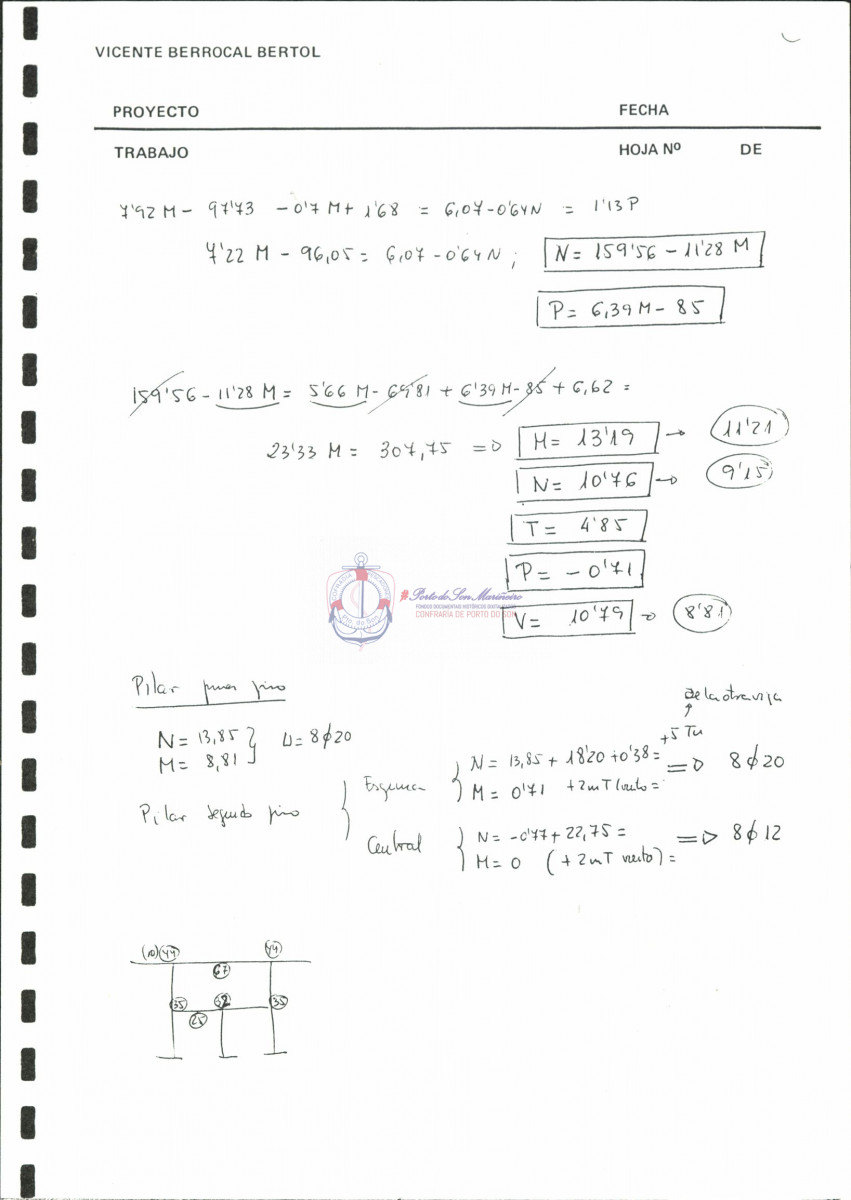 VICENTE BERROCAL BERTOL
PROYECTO FECHA
TRABAJO HOJA Nº DE
7'92 M - 97'73 - 0'7 M + 1'68 = 6,07 - 0'64 N = 1'13 P
7'22 M - 96,05 = 6,07 - 0'64 N ; N = 159'56 - 11'28 M
P = 6,39 M - 85
159'56 - 11'28 M = 5'66 M - 69'81 + 6'39 M - 85 + 6,62 =
23'33 M = 307,75 => M = 13'19 → 11'21
N = 10'76 → 9'15
T = 4'85
P = - 0'71
COFRADIA PESCADORES
Pto. do Son
#Porto do Son Mariñeiro
FONDOS DOCUMENTAIS HISTÓRICOS DIXITALIZADOS
CONFRARÍA DE PORTO DO SON
V = 10'79 → 8'81
Pilar primer piso
De la otra viga
N = 13,85
M = 8,81
U = 8ϕ20
+5 Tn
N = 13,85 + 18'20 + 0'38 = => 8ϕ20
Pilar segundo piso
Esquina
M = 0'71 + 2mT (viento =
Central
N = -0'77 + 22,75 = => 8ϕ12
M = 0 (+ 2mT viento) =
(10) 44 44
67
35 52 35
25